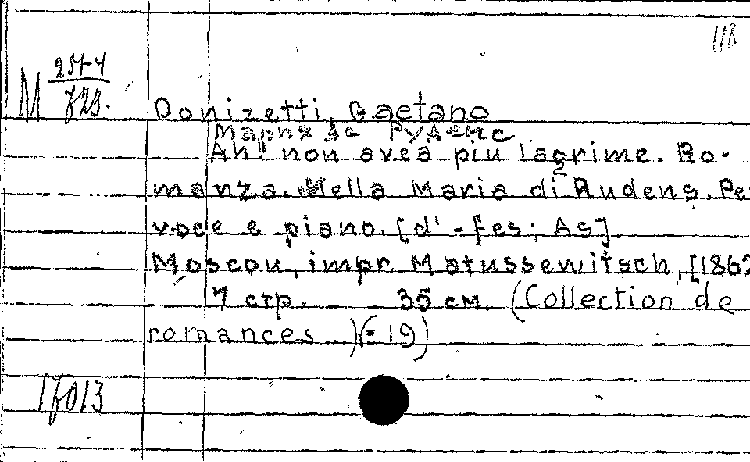 118
M 251-4/723.
Donizetti, Gaetano
Мария де Руденс
Ah! non avea piu lagrime. Ro-
manza. Nella Maria di Rudens. Per
voce e piano. [d' - fes; As]
Moscou, impr. Matussewitsch, [1862
7 стр. 35 см. (Collection de
romances )(= 19)
17013